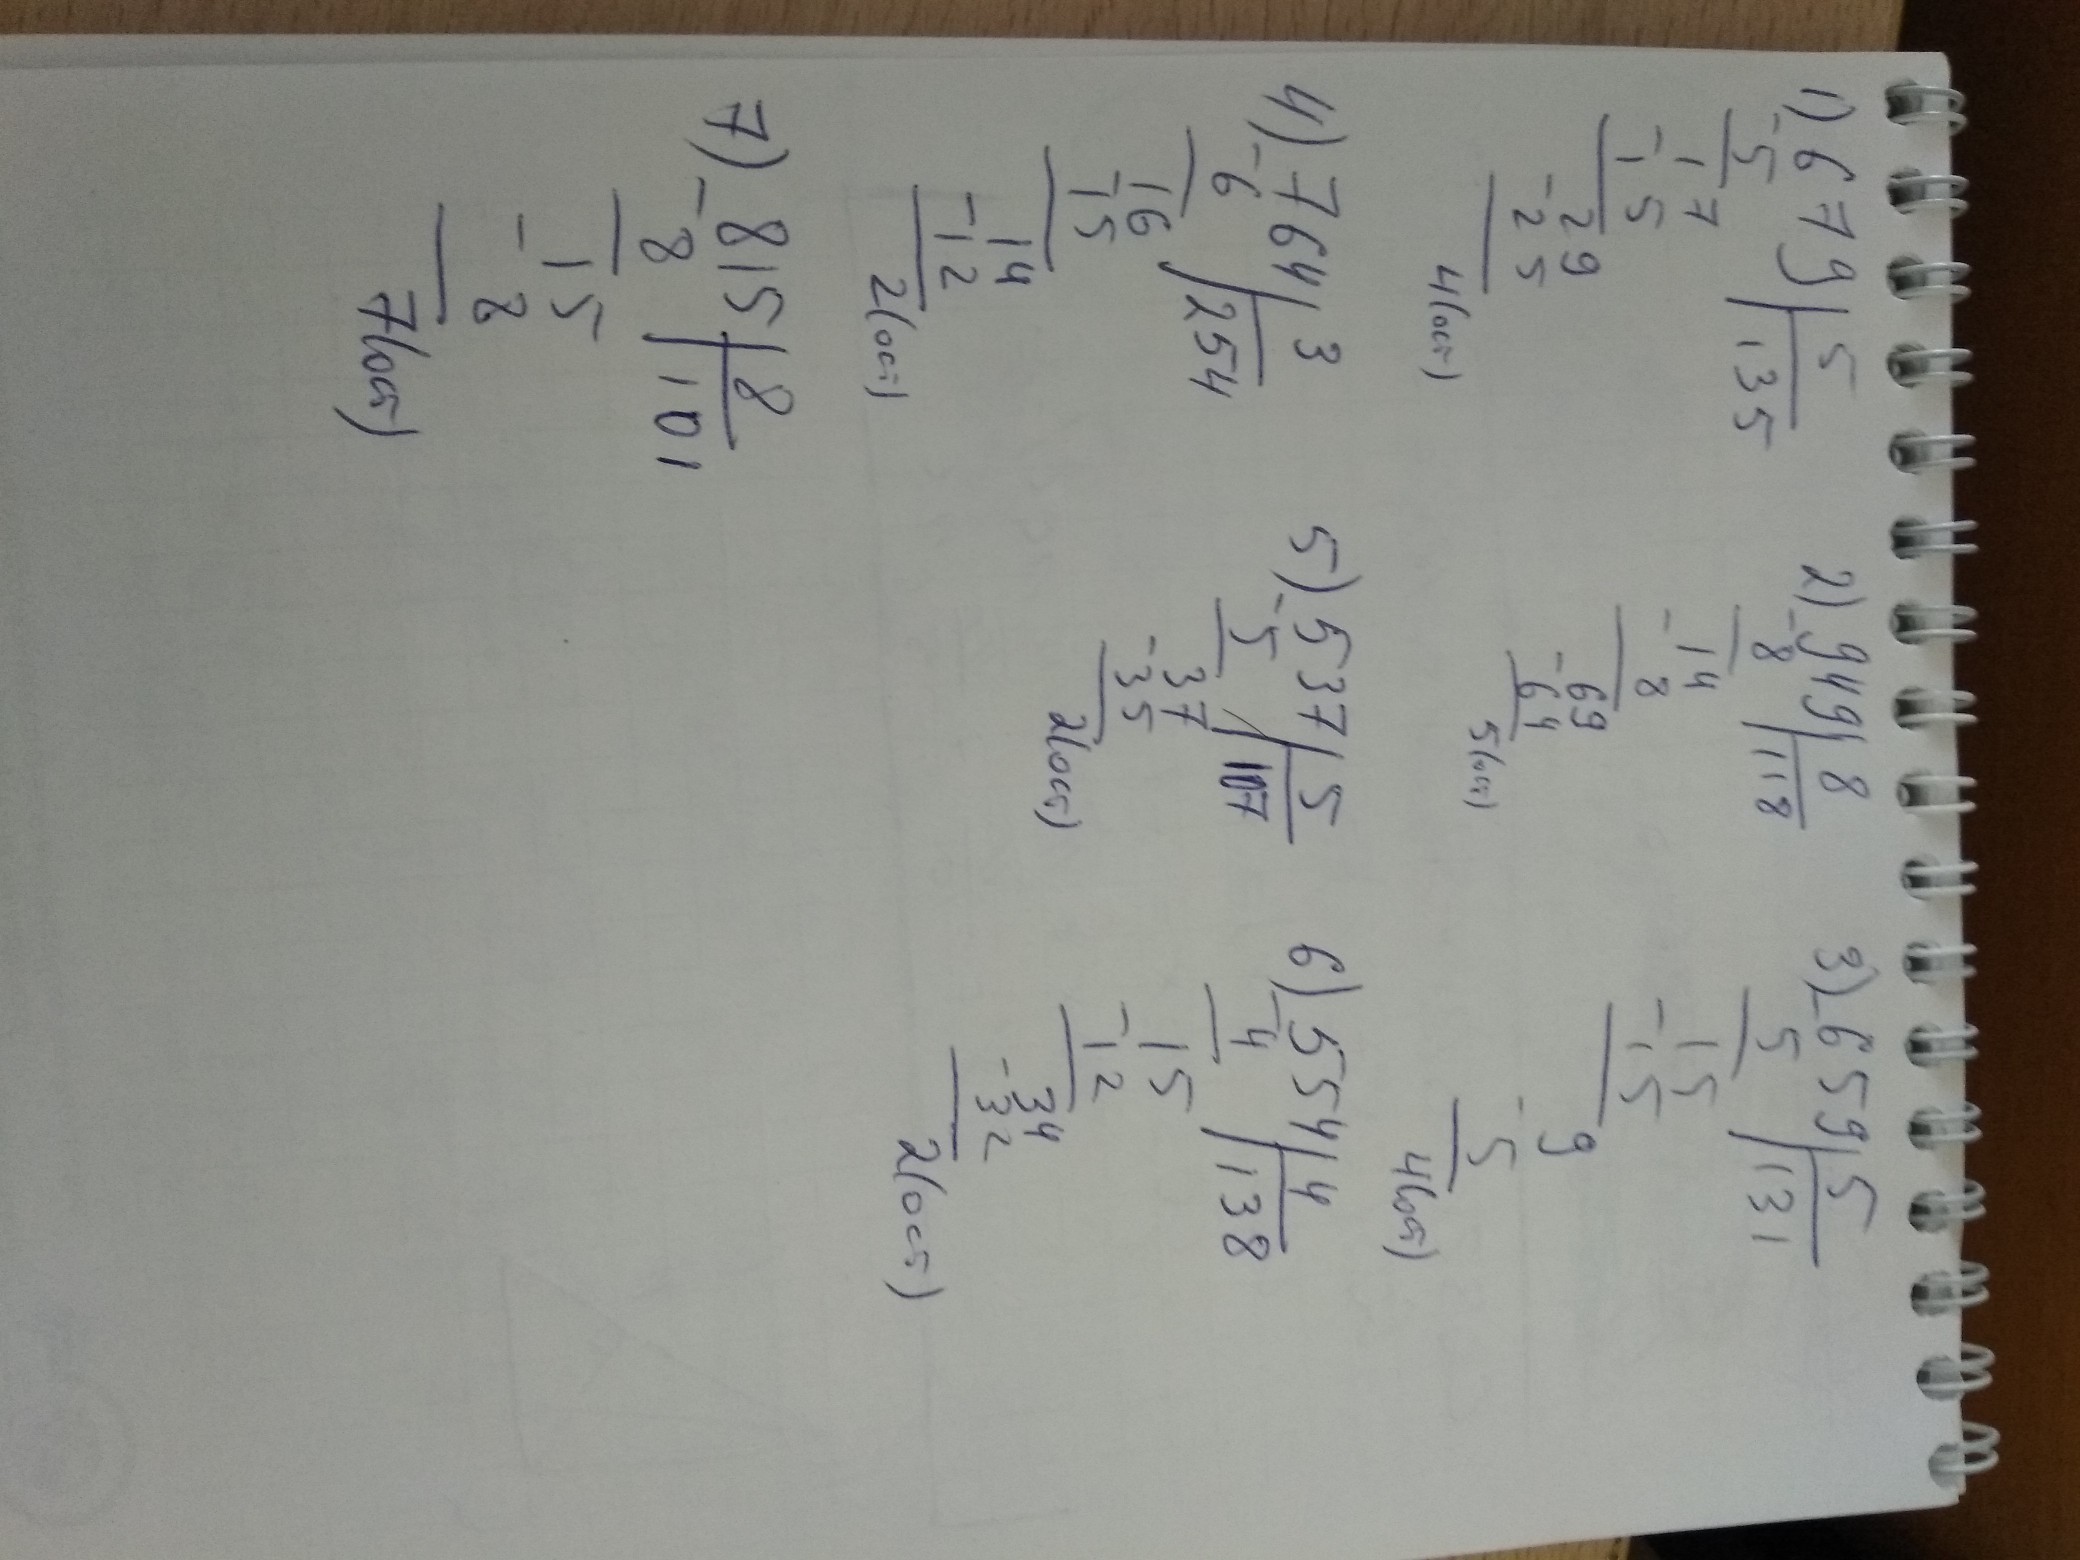 1) 679 | 5
-5 | 135
17
-15
29
-25
4(ост)
2) 949 | 8
-8 | 118
14
-8
69
-64
5(ост)
3) 659 | 5
-5 | 131
15
-15
9
-5
4(ост)
4) 764 | 3
-6 | 254
16
-15
14
-12
2(ост)
5) 537 | 5
-5 | 107
37
-35
2(ост)
6) 554 | 4
-4 | 138
15
-12
34
-32
2(ост)
7) 815 | 8
-8 | 101
15
-8
7(ост)